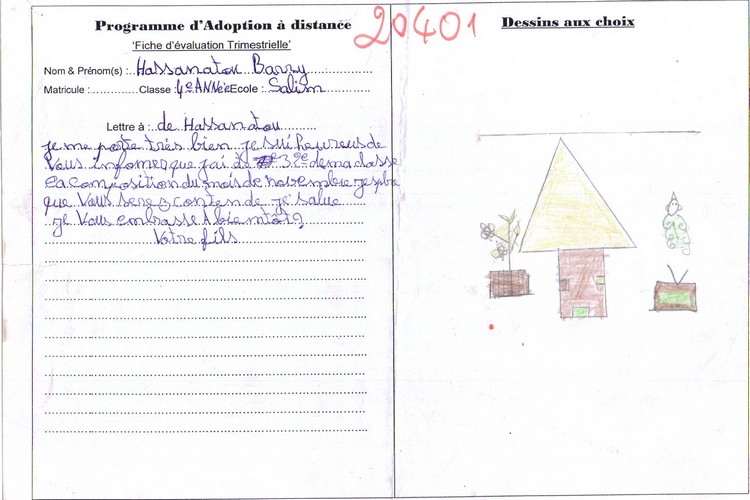 Programme d'Adoption à distance
20401
'Fiche d'évaluation Trimestrielle'
Nom & Prénom(s) : Hassanatou Barry
Matricule : Classe : 4e ANNéE Ecole : Salim
Lettre à : de Hassanatou
je me porte très bien je sui heureus de
Vous infomer que j'ai été 3 ee de ma classe
a composition du mais de novembre je spre
que Vous sere conten de je salue
je Vous embrasse A bie mtôt
Votre fils
Dessins aux choix